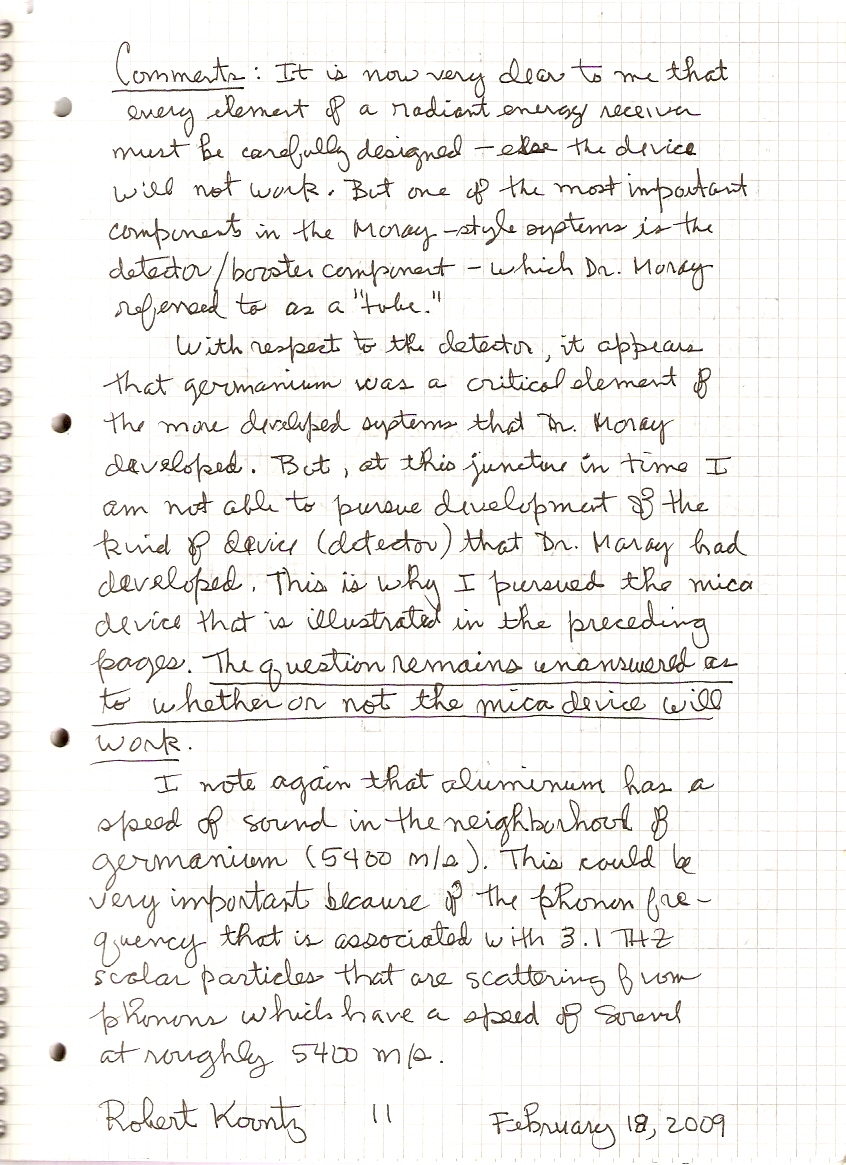 Comments: It is now very clear to me that
every element of a radiant energy receiver
must be carefully designed - else the device
will not work. But one of the most important
components in the Moray-style systems is the
detector/booster component - which Dr. Moray
referred to as a "tube."
With respect to the detector, it appears
that germanium was a critical element of
the more developed systems that Dr. Moray
developed. But, at this juncture in time I
am not able to pursue development of the
kind of device (detector) that Dr. Moray had
developed. This is why I pursued the mica
device that is illustrated in the preceding
pages. The question remains unanswered as
to whether or not the mica device will
work.
I note again that aluminum has a
speed of sound in the neighborhood of
germanium (5400 m/s). This could be
very important because of the phonon fre-
quency that is associated with 3.1 THz
scalar particles that are scattering from
phonons which have a speed of sound
at roughly 5400 m/s.
Robert Koontz 11 February 18, 2009